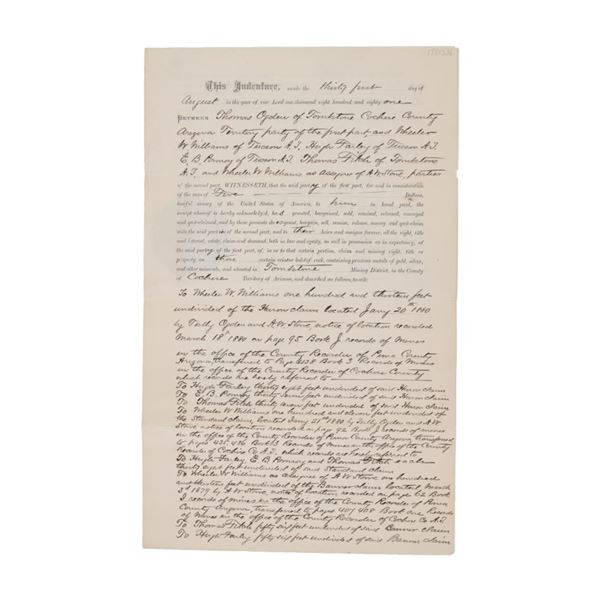 This Indenture, made the thirty first day of
August in the year of our Lord one thousand eight hundred and eighty one
BETWEEN Thomas Ogden of Tombstone Cochise County
Arizona Territory party of the first part, and Wheeler
W Williams of Tucson A.T. Hugh Farley of Tucson A.T.
E. B. Pomroy of Tucson A.T. Thomas Fitch of Tombstone
A.T. and Wheeler W Williams as Assignee of A W Stowe, parties
of the second part, WITNESSETH, that the said party of the first part, for and in consideration
of the sum of Five Dollars,
lawful money of the United States of America, to him in hand paid, the
receipt whereof is hereby acknowledged, has granted, bargained, sold, remised, released, conveyed
and quit-claimed, and by these presents does grant, bargain, sell, remise, release, convey and quit-claim
unto the said parties of the second part, and to their heirs and assigns forever, all the right, title
and interest, estate, claim and demand, both in law and equity, as well in possession as in expectancy, of
the said party of the first part, of, in or to that certain portion, claim and mining right, title or
property, on three certain veins or lodes of rock, containing precious metals of gold, silver,
and other minerals, and situated in Tombstone Mining District, in the County
of Cochise Territory of Arizona, and described as follows, to-wit:
To Wheeler W. Williams one hundred and thirteen feet
undivided of the Huron claim located Jany 20th 1880
by Tully Ogden and A W Stowe, notice of location recorded
March 18th 1880 on page 95 Book J records of Mines
in the office of the County Recorder of Pima County
Arizona, transferred to Page 438 Book 3 Records of Mines
in the office of the County Recorder of Cochise County
which records are hereby referred to
To Hugh Farley thirty eight feet undivided of said Huron claim
To E. B. Pomroy thirty seven feet undivided of said Huron claim
To Thomas Fitch thirty seven feet undivided of said Huron claim
To Wheeler W Williams one hundred and eleven feet undivided of
the Standard claim, located Jany 21st 1880 by Tully Ogden and A W
Stowe notice of location recorded on page 92 Book J records of mines
in the office of the County Recorder of Pima County Arizona transferred
to pages 435, 436 Book 3 Records of Mines in the office of the County
Recorder of Cochise Co A.T. which records are hereby referred to
To Hugh Farley, E B Pomroy and Thomas Fitch each
thirty eight feet undivided of said Standard claim
To Wheeler W Williams as Assignee of A W Stowe one hundred
and thirteen feet undivided of the Banner claim located March
3d 1879 by A W Stowe, notice of location recorded on page 62 Book
records of mines in the office of the County Recorder of Pima
County Arizona, transferred to pages 407, 408 Book one Records
of Mines in the office of the County Recorder of Cochise Co A.T.
To Thomas Fitch fifty six feet undivided of said Banner claim
To Hugh Farley fifty six feet undivided of said Banner claim